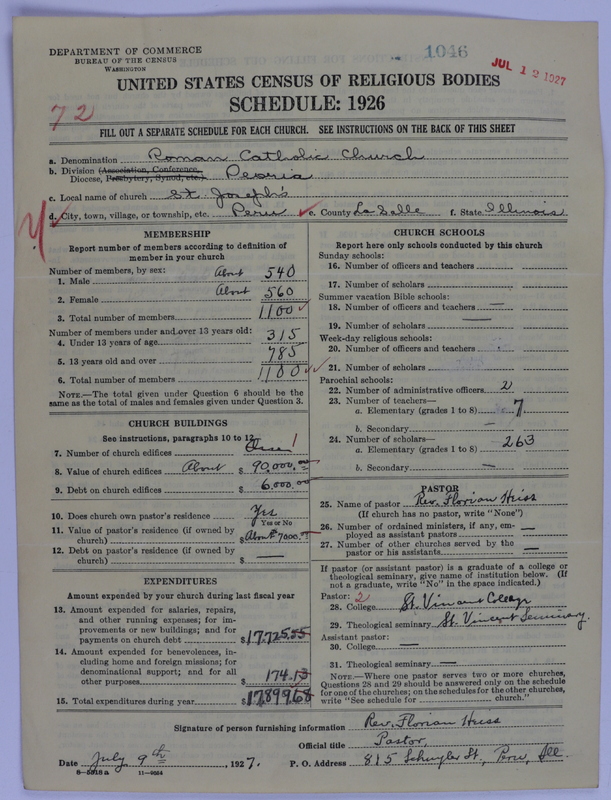 DEPARTMENT OF COMMERCE
BUREAU OF THE CENSUS
WASHINGTON
1046
JUL 12 1927
UNITED STATES CENSUS OF RELIGIOUS BODIES
SCHEDULE: 1926
72
FILL OUT A SEPARATE SCHEDULE FOR EACH CHURCH. SEE INSTRUCTIONS ON THE BACK OF THIS SHEET
a. Denomination Roman Catholic Church
b. Division (Association, Conference, Diocese, Presbytery, Synod, etc.) Peoria
c. Local name of church St. Joseph's
d. City, town, village, or township, etc. Peru e. County La Salle f. State Illinois
MEMBERSHIP
Report number of members according to definition of
member in your church
Number of members, by sex:
1. Male About 540
2. Female About 560
3. Total number of members 1100
Number of members under and over 13 years old:
4. Under 13 years of age 315
5. 13 years old and over 785
6. Total number of members 1100
NOTE.—The total given under Question 6 should be
same as the total of males and females given under Question 3.
CHURCH BUILDINGS
See instructions, paragraphs 10 to 12
7. Number of church edifices 1
8. Value of church edifices About $ 90,000.00
9. Debt on church edifices $ 6,000.00
10. Does church own pastor's residence Yes
Yes or No
11. Value of pastor's residence (if owned by
church) $ About $7000.00
12. Debt on pastor's residence (if owned by
church) $ —
EXPENDITURES
Amount expended by your church during last fiscal year
13. Amount expended for salaries, repairs,
and other running expenses; for im-
provements or new buildings; and for
payments on church debt $17,725.55
14. Amount expended for benevolences, in-
cluding home and foreign missions; for
denominational support; and for all
other purposes $ 174.13
15. Total expenditures during year $17,899.68
CHURCH SCHOOLS
Report here only schools conducted by this church
Sunday schools:
16. Number of officers and teachers
17. Number of scholars
Summer vacation Bible schools:
18. Number of officers and teachers —
19. Number of scholars —
Week-day religious schools:
20. Number of officers and teachers
21. Number of scholars
Parochial schools:
22. Number of administrative officers 2
23. Number of teachers—
a. Elementary (grades 1 to 8) 7
b. Secondary —
24. Number of scholars—
a. Elementary (grades 1 to 8) 263
b. Secondary —
PASTOR
25. Name of pastor Rev. Florian Huss
(If church has no pastor, write "None")
26. Number of ordained ministers, if any, em-
ployed as assistant pastors —
27. Number of other churches served by the
pastor or his assistants —
If pastor (or assistant pastor) is a graduate of a college or
theological seminary, give name of institution below. (If
not a graduate, write "No" in the space indicated.)
Pastor: 2
28. College St. Vincent College
29. Theological seminary St. Vincent Seminary.
Assistant pastor:
30. College —
31. Theological seminary —
NOTE.—Where one pastor serves two or more churches,
Questions 28 and 29 should be answered only on the schedule
for one of the churches; on the schedules for the other churches,
write "See schedule for church."
Signature of person furnishing information Rev. Florian Huss
Official title Pastor,
Date July 9th, 1927. P. O. Address 815 Schuyler St., Peru, Ill.
8—5818a 11—9264